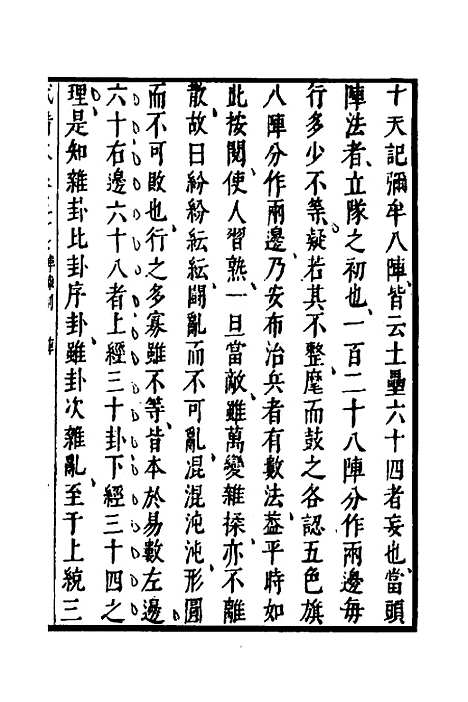 十天記彌牟八陣皆云土壘六十四者妄也當頭
陣法者立隊之初也一百二十八陣分作兩邊每
行多少不等疑若其不整麾而鼓之各認五色旗
八陣分作兩邊乃安布治兵者有數法葢平時如
此按閱使人習熟一旦當敵雖萬變雜揉亦不離
散故曰紛紛紜紜鬪亂而不可亂混混沌沌形圓
而不可敗也行之多寡雖不等皆本於易數左邊
六十右邊六十八者上經三十卦下經三十四之
理是知雜卦比卦序卦雖卦次雜亂至于上統三